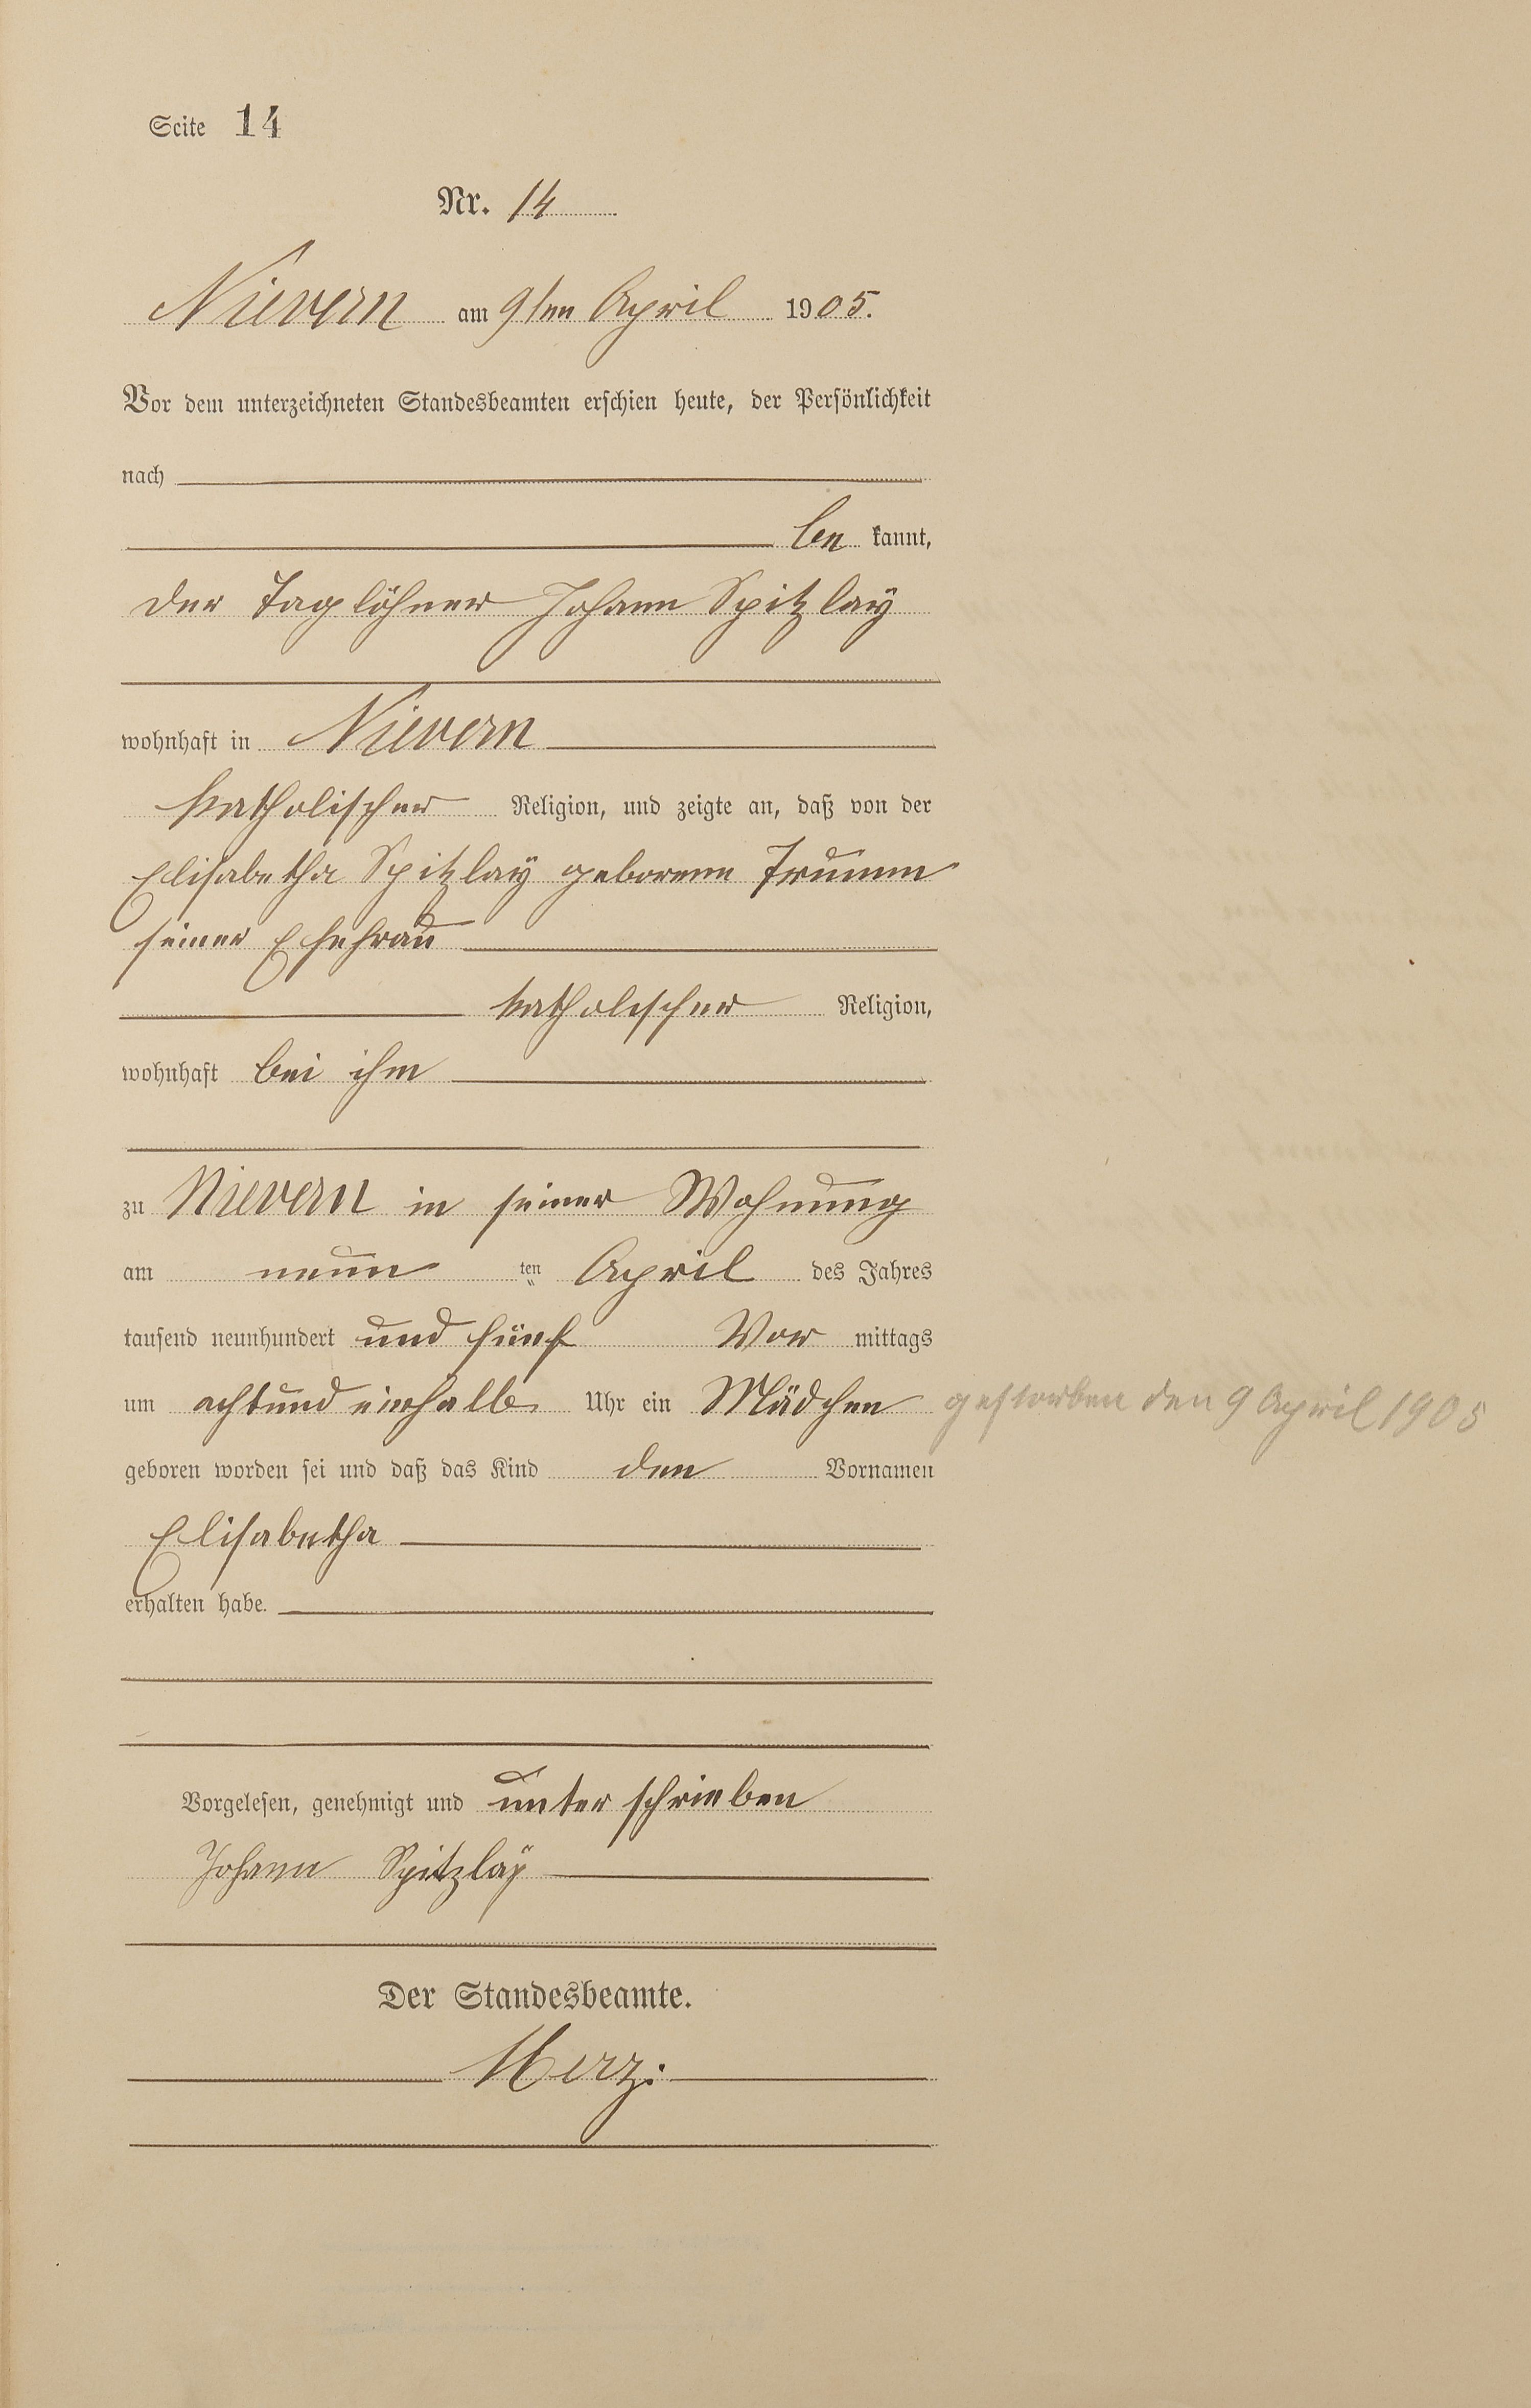 Seite 14
Nr. 14
Nievern am 9ten April 1905.
Vor dem unterzeichneten Standesbeamten erschien heute, der Persönlichkeit
nach
be kannt,
der Taglöhner Johann Spitzlay
wohnhaft in Nievern
katholischer Religion, und zeigte an, daß von der
Elisabetha Spitzlay geborene Trumm
seiner Ehefrau
katholischer Religion,
wohnhaft bei ihm
zu Nievern in seiner Wohnung
am neun ten April des Jahres
tausend neunhundert und fünf Vor mittags
um achtundeinhalb Uhr ein Mädchen gestorben den 9 April 1905
geboren worden sei und daß das Kind den Vornamen
Elisabetha
erhalten habe.
Vorgelesen, genehmigt und unterschrieben
Johann Spitzlay
Der Standesbeamte.
Merz.